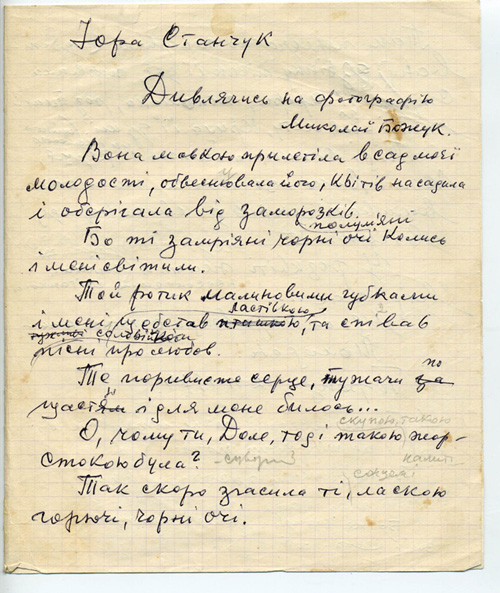 Юра Станчук
Дивлячись на фотографію
Миколай Божук.
Вона мавкою прилетіла в сад моєї
молодості, обвеснювала його, квітів насадила
і оберігала від заморозків.
полум'яні
Бо ті замріяні чорні очі колись
і мені світили.
Той ротик малиновими губками
ластівкою
і мені щебетав пташкою, та співав
солов'їною
пісні про любов.
Те пориваєте серце, тужачи за
по
щастям і для мене билось...
скупою, такою
О, чому ти, Доле, тоді такою жор-
стокою була?
Так скоро згасила ті, ласкою
горючі, чорні очі.